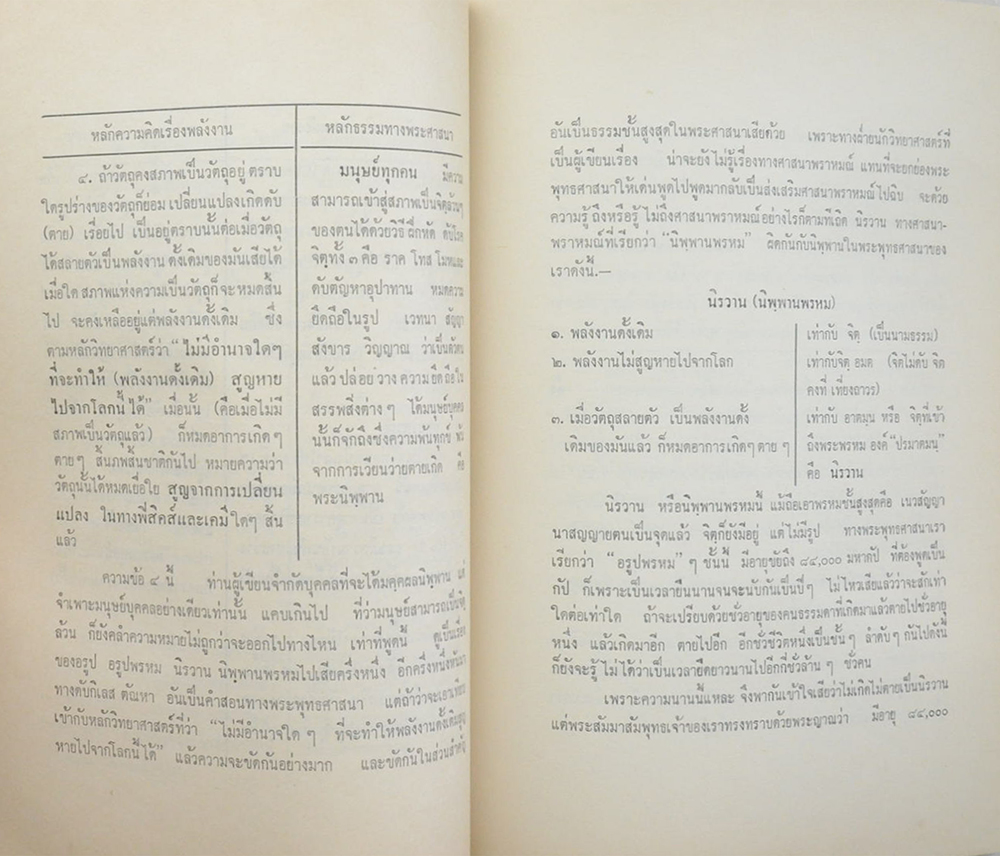 หลักความคิดเรื่องพลังงาน
๔. ถ้าวัตถุคงสภาพเป็นวัตถุอยู่ ตราบ
ใดรูปร่างของวัตถุก็ย่อม เปลี่ยนแปลงเกิดดับ
(ตาย) เรื่อยไป เป็นอยู่ตราบนั้นต่อเมื่อวัตถุ
ได้สลายตัวเป็นพลังงาน ดั้งเดิมของมันเสียได้
เมื่อใด สภาพแห่งความเป็นวัตถุก็จะหมดสิ้น
ไป จะคงเหลืออยู่แต่พลังงานดั้งเดิม ซึ่ง
ตามหลักวิทยาศาสตร์ว่า “ไม่มีอำนาจใดๆ
ที่จะทำให้ (พลังงานดั้งเดิม) สูญหาย
ไปจากโลกนี้ได้” เมื่อนั้น (คือเมื่อไม่มี
สภาพเป็นวัตถุแล้ว) ก็หมดอาการเกิดๆ
ตายๆ สิ้นภพสิ้นชาติกันไป หมายความว่า
วัตถุนั้นได้หมดเยื่อใย สูญจากการเปลี่ยน
แปลง ในทางฟิสิคส์และเคมีใดๆ สิ้น
แล้ว
หลักธรรมทางพระศาสนา
มนุษย์ทุกคน มีความ
สามารถเข้าสู่สภาพเป็นจิตล้วนๆ
ของตนได้ด้วยวิธี ฝึกหัด ดับโรค
จิตทั้ง ๓ คือ ราค โทส โมหและ
ดับตัญหาอุปาทาน หมดความ
ยึดถือในรูป เวทนา สัญญา
สังขาร วิญญาณ ว่าเป็นตัวตน
แล้ว ปล่อยวาง ความยึดถือใน
สรรพสิ่งต่างๆ ได้มนุษย์บุคคล
นั้นก็จักถึงซึ่งความพ้นทุกข์ พ้น
จากการเวียนว่ายตายเกิด คือ
พระนิพพาน
ความข้อ ๔ นี้ ท่านผู้เขียนจำกัดบุคคลที่จะได้มคุคผลนิพพาน แต่
จำเพาะมนุษย์บุคคลอย่างเดียวเท่านั้น แคบเกินไป ที่ว่ามนุษย์สามารถเป็นจิต
ล้วน ก็ยังคลำความหมายไม่ถูกว่าจะออกไปทางไหน เท่าที่พูดนี้ ดูเป็นเรื่อง
ของอรูป อรูปพรหม นิรวาน นิพพานพรหมไปเสียครึ่งหนึ่ง อีกครึ่งหนึ่งหันมา
ทางดับกิเลส ตัณหา อันเป็นคำสอนทางพระพุทธศาสนา แต่ถ้าว่าจะเอาเทียบ
เข้ากับหลักวิทยาศาสตร์ที่ว่า “ไม่มีอำนาจใด ๆ ที่จะทำให้พลังงานดั้งเดิมสูญ
หายไปจากโลกนี้ได้” แล้วความจะขัดกันอย่างมาก และขัดกันในส่วนสำคัญ
อันเป็นธรรมชั้นสูงสุดในพระศาสนาเสียด้วย เพราะทางฝ่ายนักวิทยาศาสตร์ที่
เป็นผู้เขียนเรื่อง น่าจะยังไม่รู้เรื่องทางศาสนาพราหมณ์ แทนที่จะยกย่องพระ
พุทธศาสนาให้เด่นพูดไปพูดมากลับเป็นส่งเสริมศาสนาพราหมณ์ไปฉิบ จะด้วย
ความรู้ ถึงหรือรู้ ไม่ถึงศาสนาพราหมณ์อย่างไรก็ตามทีเถิด นิรวาน ทางศาสนา-
พราหมณ์ที่เรียกว่า “นิพฺพานพรหม” ผิดกันกับนิพพานในพระพุทธศาสนาของ
เราดังนี้.—
นิรวาน (นิพฺพานพรหม)
๑. พลังงานดั้งเดิม
เท่ากับ จิตฺ (เป็นนามธรรม)
๒. พลังงานไม่สูญหายไปจากโลก
เท่ากับจิตฺ อมต (จิตไม่ดับ จิต
คงที่ เที่ยงถาวร)
๓. เมื่อวัตถุสลายตัว เป็นพลังงานดั้ง
เดิมของมันแล้ว ก็หมดอาการเกิดๆ ตาย ๆ
เท่ากับ อาตมฺน หรือ จิตฺที่เข้า
ถึงพระพรหม องค์ “ปรมาตมนฺ”
คือ นิรวาน
นิรวาน หรือนิพพานพรหมนี้ แม้ถือเอาพรหมชั้นสูงสุดคือ เนวสัญญา
นาสญญายตนเป็นจุดแล้ว จิตก็ยังมีอยู่ แต่ไม่มีรูป ทางพระพุทธศาสนาเรา
เรียกว่า “อรูปพรหม” ๆ ชั้นนี้ มีอายุขัยถึง ๘๔,๐๐๐ มหากัป ที่ต้องพูดเป็น
กัป ก็เพราะเป็นเวลายืนนานจนจะนับกันเป็นปีๆ ไม่ไหวเสียแล้วว่าจะสักเท่า
ใดต่อเท่าใด ถ้าจะเปรียบด้วยชั่วอายุของคนธรรมดาที่เกิดมาแล้วตายไปชั่วอายุ
หนึ่ง แล้วเกิดมาอีก ตายไปอีก อีกชั่วชีวิตหนึ่งเป็นชั้นๆ ลำดับๆ กันไปดังนี้
ก็ยังจะรู้ไม่ได้ว่าเป็นเวลายืดยาวนานไปอีกกี่ชั่วล้านๆ ชั่วคน
เพราะความนานนี้แหละ จึงพากันเข้าใจเสียว่าไม่เกิดไม่ตายเป็นนิรวาน
แต่พระสัมมาสัมพุทธเจ้าของเราทรงทราบด้วยพระญาณว่า มีอายุ ๘๔,๐๐๐